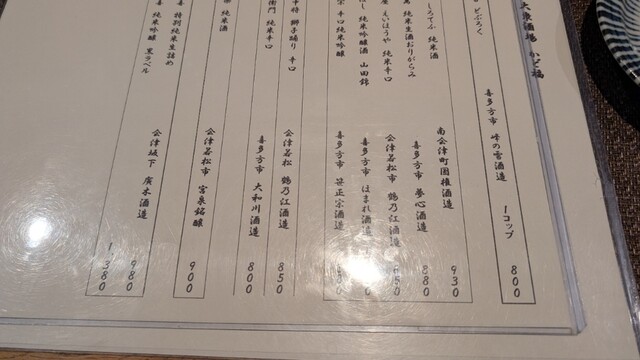 大衆酒場 かど福
どぶろく
喜多方市 峰の雪酒造 1コップ 800
しろてぶ 純米酒
南会津町国権酒造 930
純米生酒おりがらみ
喜多方市 夢心酒造 880
えいほうや 純米辛口
会津若松市 鶴乃江酒造 850
純米吟醸酒 山田錦
喜多方市 ほまれ酒造
宗 辛口純米吟醸
喜多方市 笹正宗酒造
中将 獅子踊り 辛口
会津若松 鶴乃江酒造 850
衛門 純米辛口
喜多方市 大和川酒造 800
楽 純米酒
会津若松市 宮泉銘醸 900
喜 特別純米生詰め
980
喜 純米吟醸 黒ラベル
会津坂下 廣木酒造
1,380